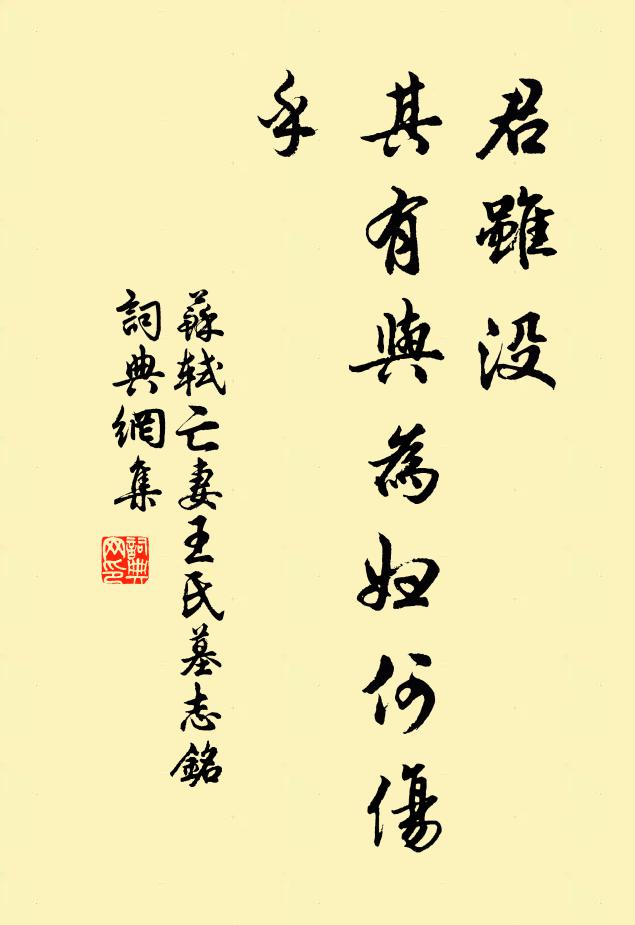 君雖没
其有與為婦何傷
乎
蘇軾亡妻王氏墓志銘
詞典網集
詞典
网印